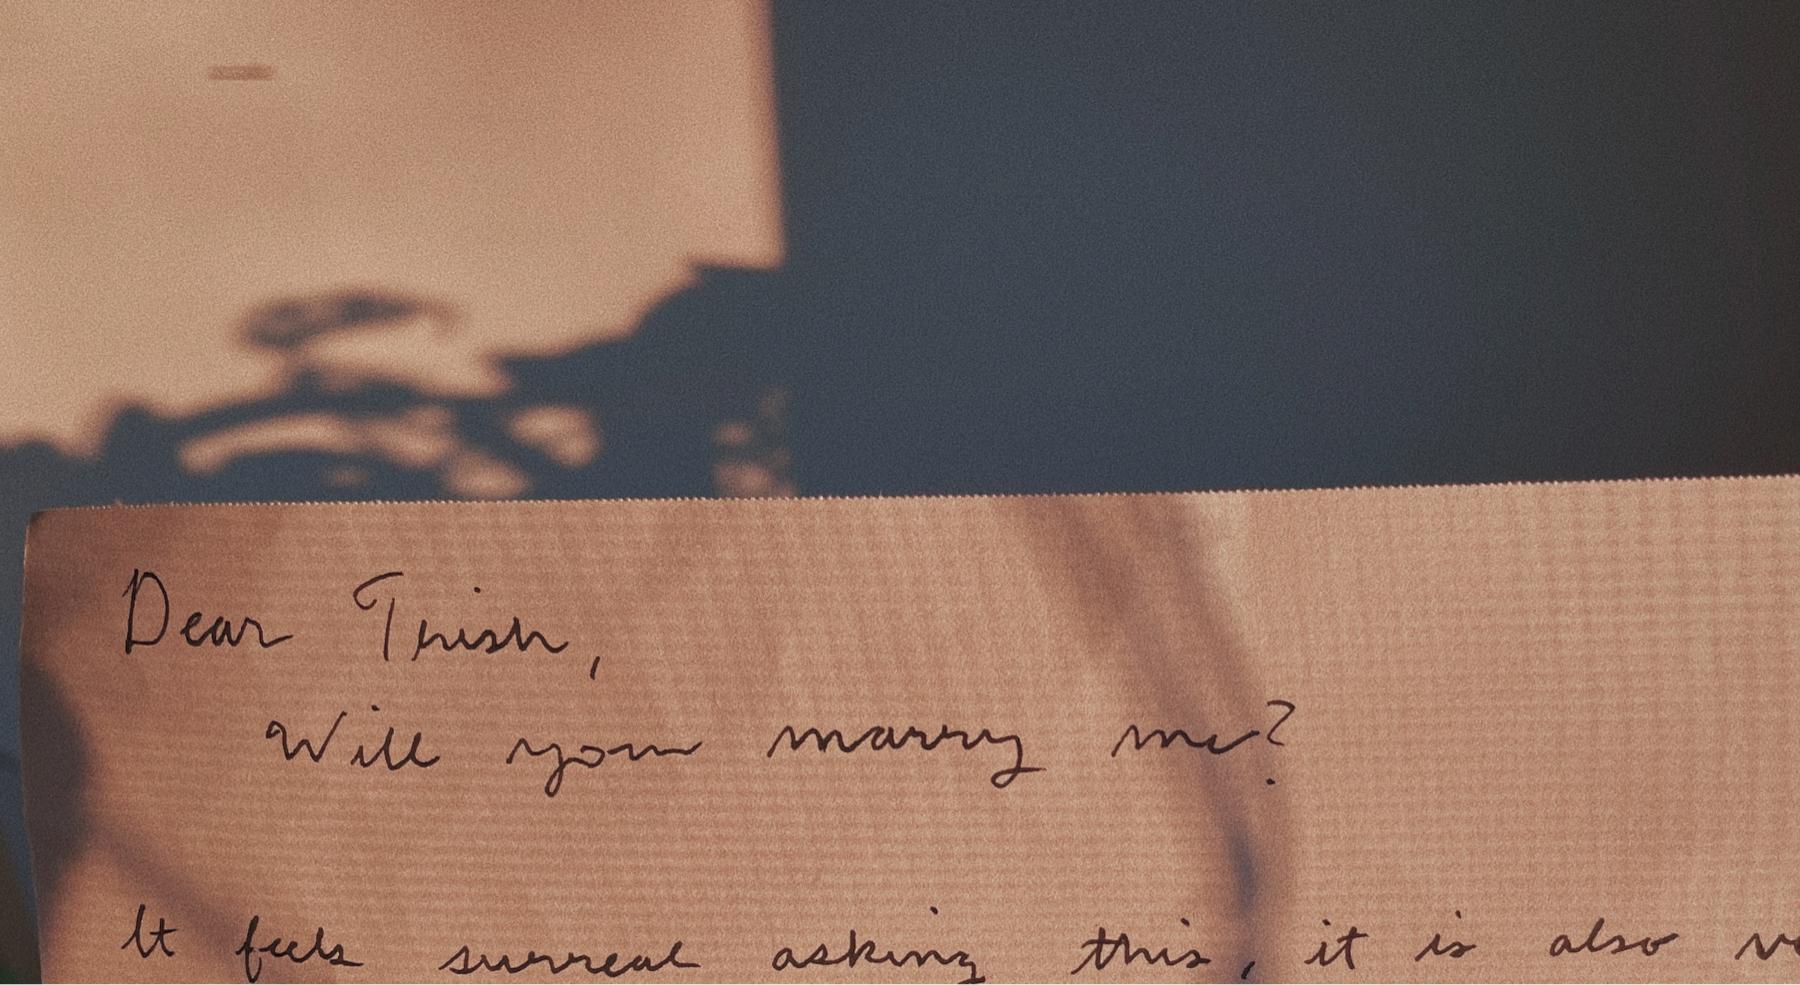 Dear Trish,
Will you marry me?
It feels surreal asking this, it is also